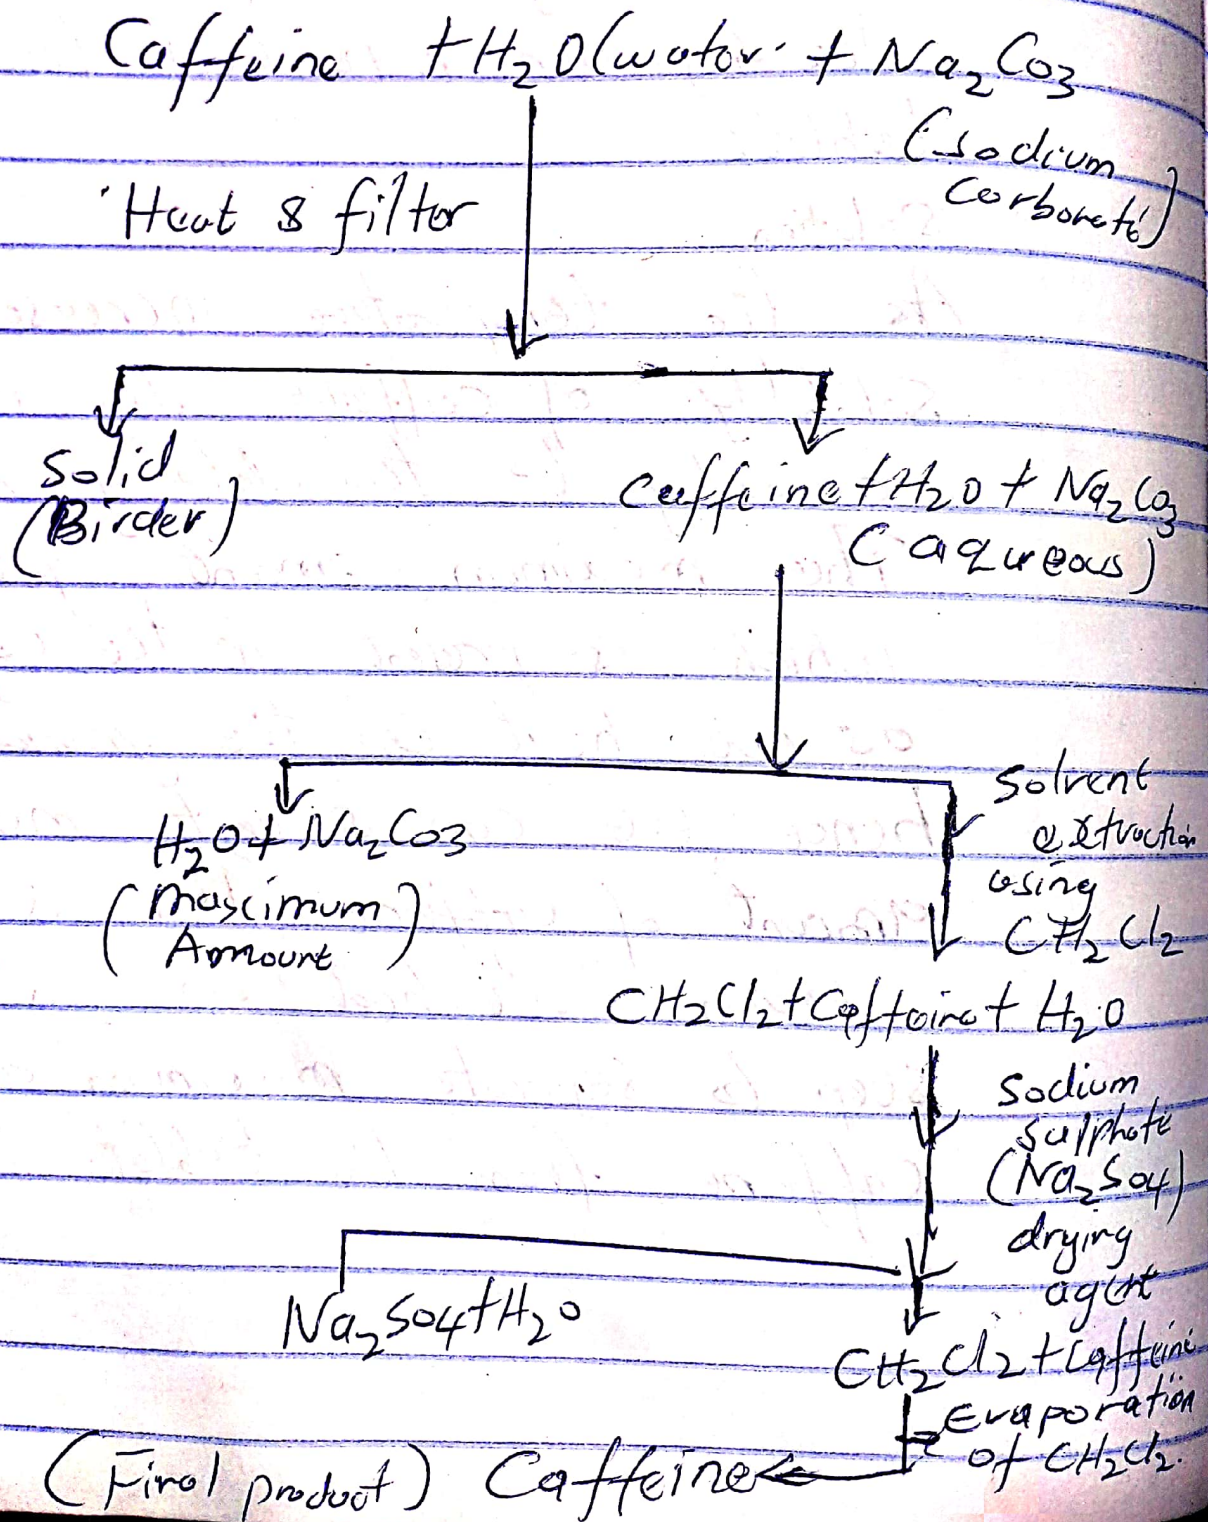 Caffeine + H2O (water + Na2Co3
(sodium
carbonate)
Heat & filter
Solid
(Birder)
Caffeine + H2O + Na2Co3
(aqureous)
H2O + Na2Co3
(mascimum
Amount)
Solvent
extraction
using
CH2Cl2
CH2Cl2 + Caffeine + H2O
Sodium
sulphate
(Na2So4)
drying
agent
Na2So4 + H2O
CH2Cl2 + Caffeine
Evaporation
of CH2Cl2.
(Final product) Caffeine